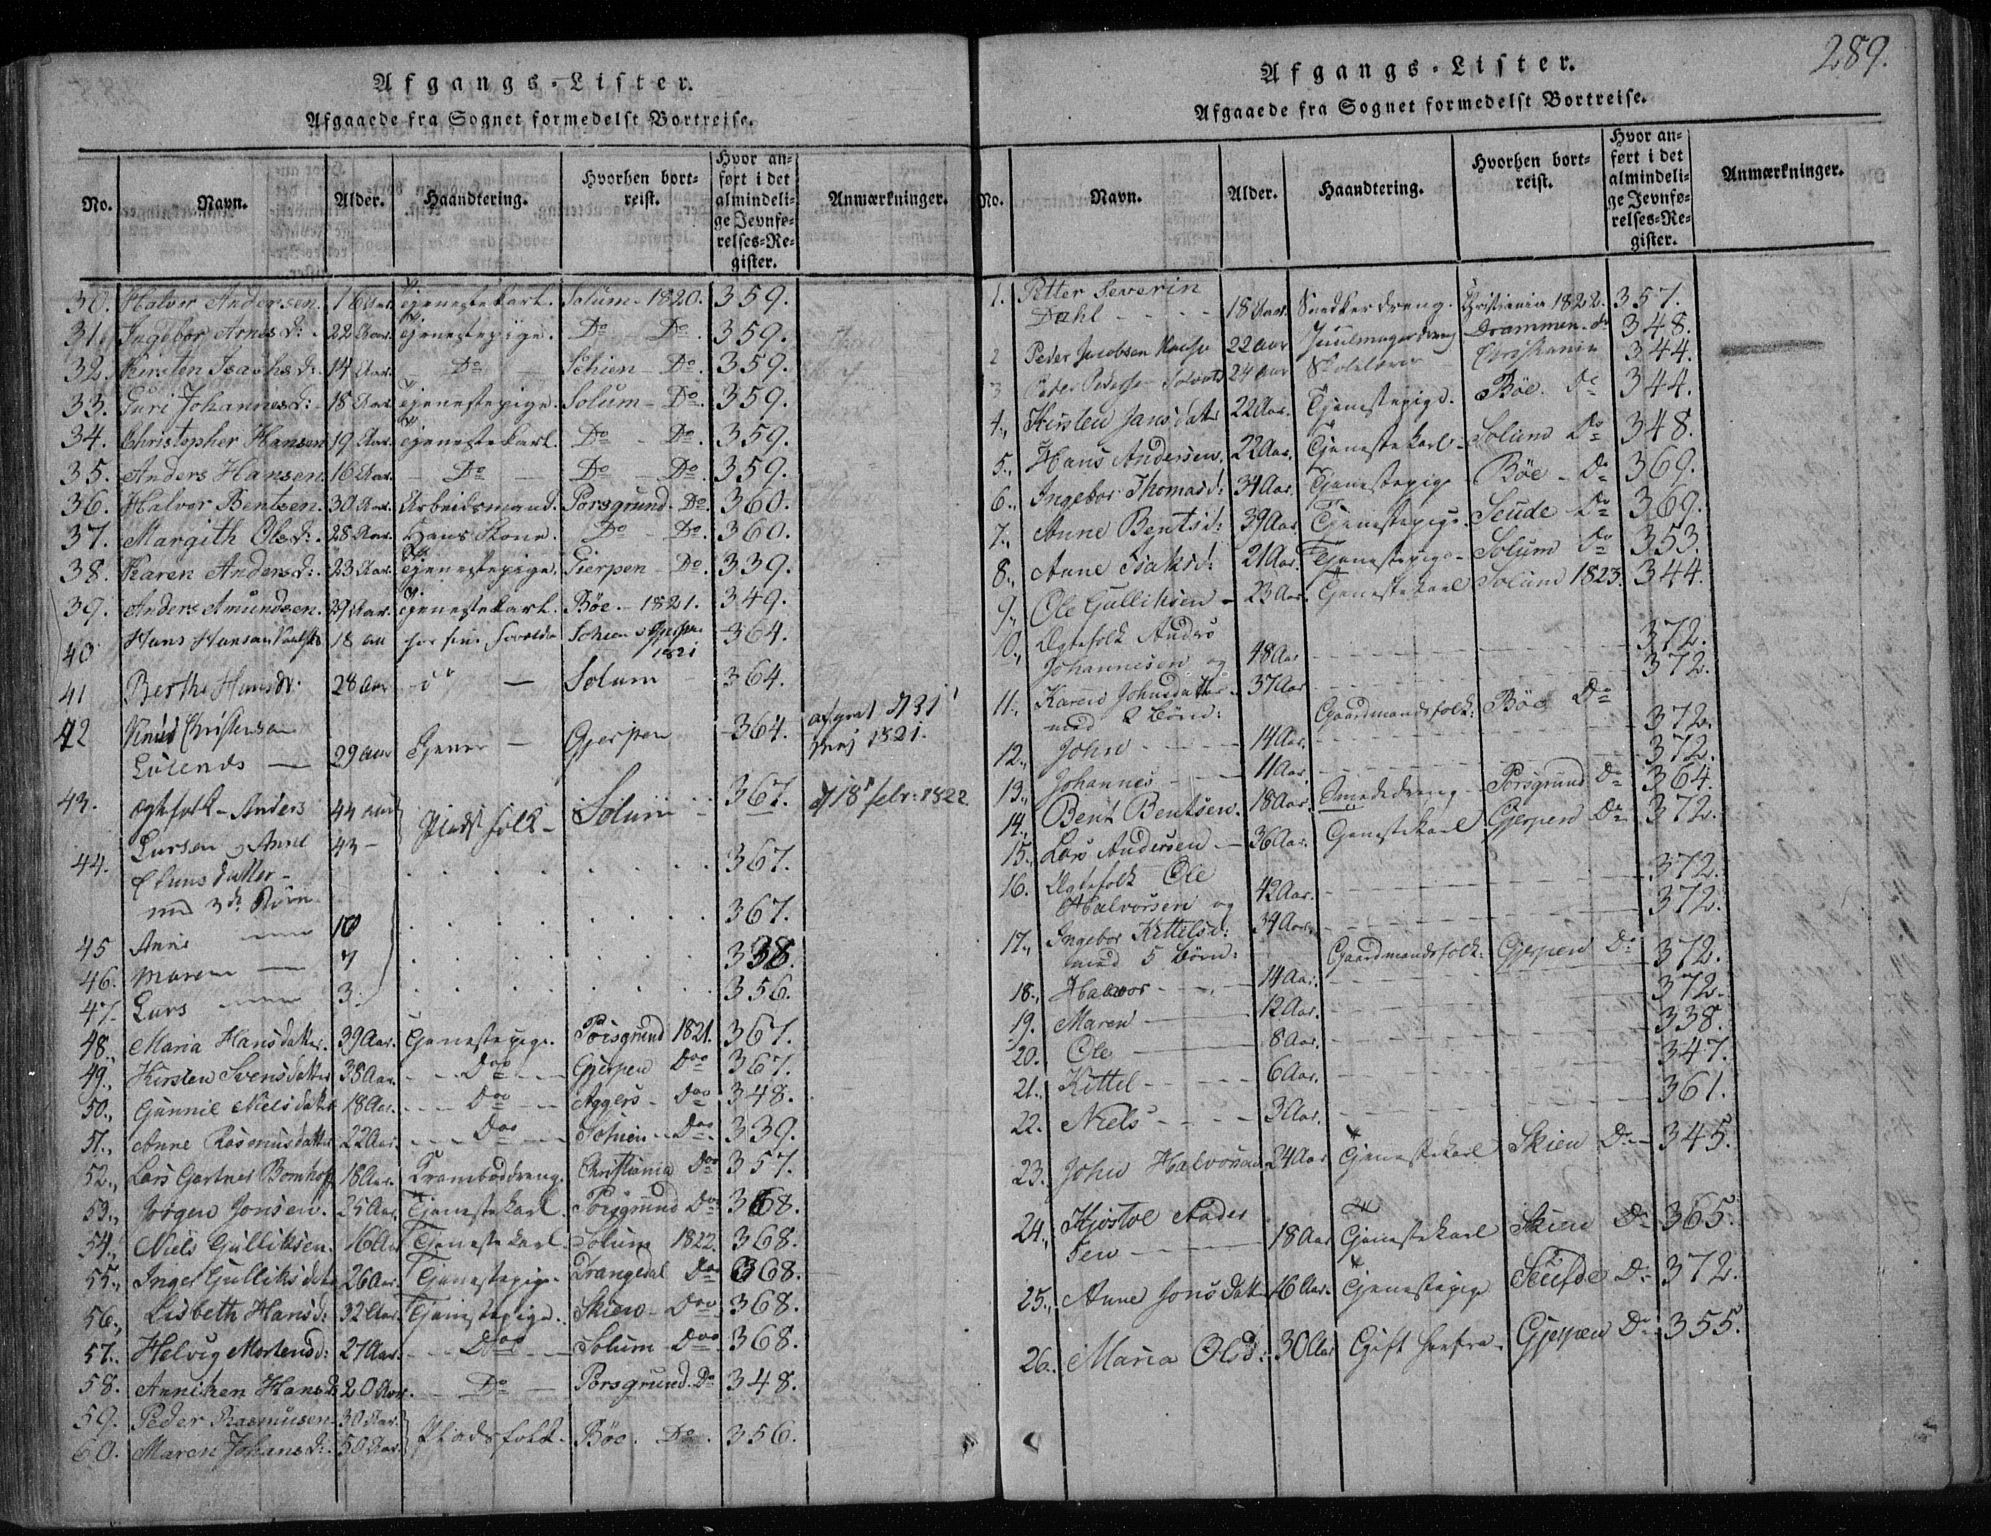 Afgangs-Lister.
Afgaaede fra Sognet formedelst Bortreise.
No. Navn. Alder. Haandtering. Hvorhen bortreist. Hvor anført i det almindelige Jevnførelses-Register. Anmærkninger.
30. Halvor Andersen. 16 Aar. Tjenestekarl. Solum - 1820. 359.
31. Ingebor Arnes D: 22 Aar. Tjenestepige. Do Do. 359.
32. Kirsten Isachs D: 14 Aar. Do Schien - Do. 359.
33. Guri Johannes D: 18 Aar. Tjenestepige. Solum - Do. 359.
34. Christopher Hansen 19 Aar. Tjenestekarl. Do - Do. 359.
35. Anders Hansen. 16 Aar. Do Do - Do. 359.
36. Halvor Bentsen. 30 Aar. Arbeidsmand. Porsgrund. Do. 360.
37. Margith Ole D: 28 Aar. Hans Kone. Do - Do. 360.
38. Karen Anders D: 23 Aar. Tjenestepige. Gierpen - Do. 339.
39. Anders Amundsen. 29 Aar. Tjenestekarl. Böe - 1821. 349.
40 Hans Hansen 18 aar hos sine Schien 1821 364.
41 Berthe Hansdr. 28 Aar do — Solum 364.
42 Knud Christensen 364.
29 aar Tjener — Gjerpen maj 1821.
43. Ægtefolk - Anders 44 aar Pladsfolk - Solum 367. d 18 febr. 1822.
44. Larsen og Anne 43 - 367.
datter -
med 3de Børn
45 Anne 10 367.
46. Maren — 7 338.
47. Lars 3. 356.
48., Maria Hansdatter. 39 Aar. Tjenestepige. Porsgrund 1821. 367.
49., Kirsten Svensdatter 38 Aar. Doo Gjerpen Doo 367.
50., Gunnil Nielsdatter 18 Aar. Doo Aggers - Doo 348.
51., Anne Rasmusdatter 22 Aar. Doo Schien - Doo. 339.
52., Lars Gartner Bomhoff 18 Aar. Kramboddreng. Christiania Doo 357.
53., Jörgen Jonsen. 25 Aar. Tjenestekarl. Porsgrund Doo 368.
54., Niels Gulliksen. 16 Aar Tjenestekarl. Solum 1822. 368.
55., Inger Gulliksdatr 26 Aar. Tjenestepige. Drangedal Doo 368.
56., Lisbeth Hansd: 32 Aar. Tjenistepige. Skien - Doo 368.
57. Helvig Mortensd: 27 Aar. Doo Solum - Doo 368.
58. Anniken Hans D: 20 Aar. Do Porsgrund. Do 348.
59. Peder Rasmusen 30 Aar. Pladsfolk. Böe. Do. 356.
60. Maren Johans D: 50 Aar.
289.
Afgangs-Lister.
Afgaaede fra Sognet formedelst Bortreise.
No. Navn. Alder. Haandtering. Hvorhen bortreist. Hvor anført i det almindelige Jevnførelses-Register. Anmærkninger.
1. Petter Severin
Dahl 18 Aar. Snedkerdreng. Christiania 1822. 357.
2 Peder Jacobsen 22 aar Drammen - do 348.
3 Peder 24 aar Skolelærer Christiania 344.
4., Kirsten Jansdatr 22 Aar. Tjenestepige. Böe. Do 344.
5., Hans Andersen. 22 Aar. Tjenestekarl - Solum Do 348.
6., Ingebor Thomasd: 34 Aar. Tjenestepige Böe - Do 369.
7., Anne Bentsd: 39 Aar. Tjenestepige. Seude Do 369.
8., Anne Isaksd: 21 Aar. Tjenestepige - Solum Do 353.
9., Ole Gulliksen - 23 Aar. Tjenestekarl Solum 1823. 344.
10., Ægtefolk Anders
Johannesen og 48 Aar 372.
11., Karen Johnsdatter 37 Aar 372.
med 2 børn: Gaardmandsfolk: Böe Do
12., John 14 Aar. 372.
13., Johannes 11 Aar. 372.
14., Bent Bentsen. 18 Aar. Smededreng - Porsgrund Do 364.
15., Lars Andersen - 36 Aar. Tjenestekarl Gjerpen Do 372.
16. Ægtefolk Ole
Halvorsen og 42 Aar. 372.
17., Ingebor Kittelsd: 34 Aar. 372.
med 5 børn: Gaardmandsfolk. Gjerpen Do
18., Halvor 14 Aar. 372.
19. Maren 12 Aar. 372.
20. Ole 8 Aar. 338.
21. Kittel 6 Aar. 347.
22. Niels 3 Aar. 361.
23. John Halvorsen 24 Aar Tjenestekarl Skien Do 345.
24., Kjøstol Anders
sen 18 Aar Tjenestekarl Skien Do 365.
25., Anne Jonsdatter 16 Aar. Tjenestepige Seufde Do 372.
26. Maria Olsd: 30 Aar Gift herfra - Gjerpen Do 355.